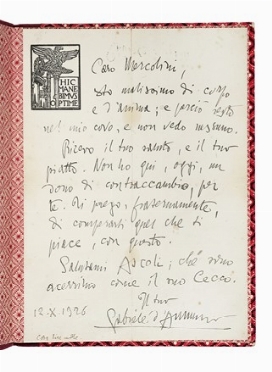 HIC
MANE
BIMVS
OPTIME
Caro Marcolini,
sto malissimo di corpo
e d'anima; e perciò resto
nel mio covo, e non vedo nessuno.
Ricevo il tuo saluto, e il tuo
piatto. Non ho qui, oggi, un
dono di contraccambio, per
te. Ti prego, fraternamente,
di comperarti quel che ti
piace, con questo.
Salutami Ascoli; ché sono
acerrimo come il suo Cecco.
Il tuo
Gabriele d'Annunzio
12.X 1926